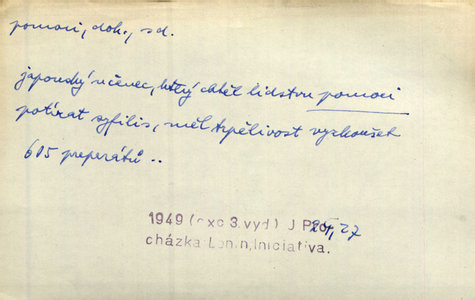 pomoci, dok., sd.
japonský učenec, který chtěl lidstvu pomoci
potírat syfilis, měl trpělivost vyzkoušet
605 preparátů ..
1949 (exc 3.vyd) J Pro 24, 27
cházka: Lenin, Iniciativa.